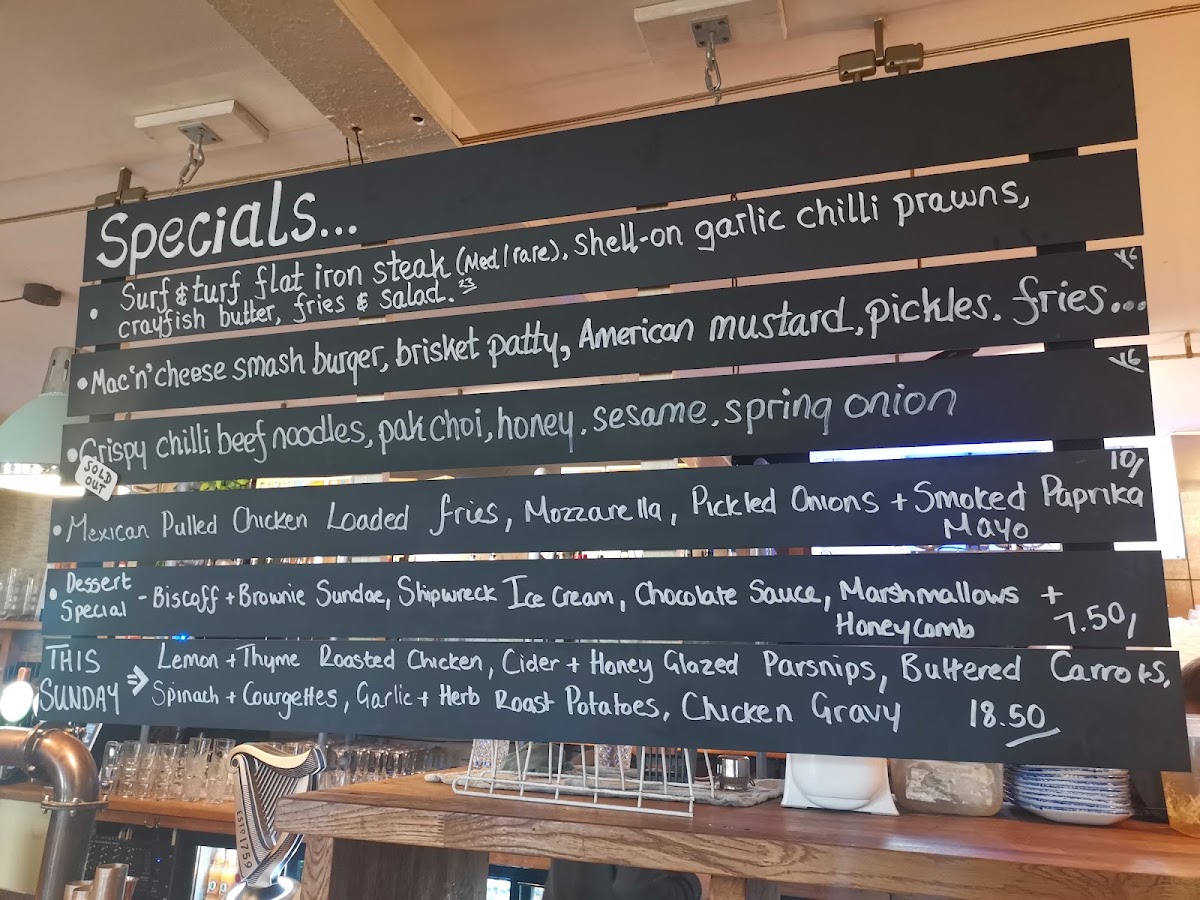 Specials...
• Surf & turf flat iron steak (Med/rare). Shell-on garlic chilli prawns,
crayfish butter, fries & salad. 23
• Mac'n'cheese smash burger, brisket patty, American mustard, pickles. fries... 16
• Crispy chilli beef noodles, pak choi, honey. sesame. spring onion 16
SOLD
OUT
• Mexican Pulled Chicken Loaded fries, Mozzarella, Pickled Onions + Smoked Paprika 10/
Mayo
• Dessert
Special - Biscoff + Brownie Sundae, Shipwreck Ice Cream, Chocolate Sauce, Marshmallows +
Honeycomb 7.50/
THIS
SUNDAY ⇒ Lemon + Thyme Roasted Chicken, Cider + Honey Glazed Parsnips, Buttered Carrots,
Spinach + Courgettes, Garlic + Herb Roast Potatoes, Chicken Gravy 18.50
ESTD 1759